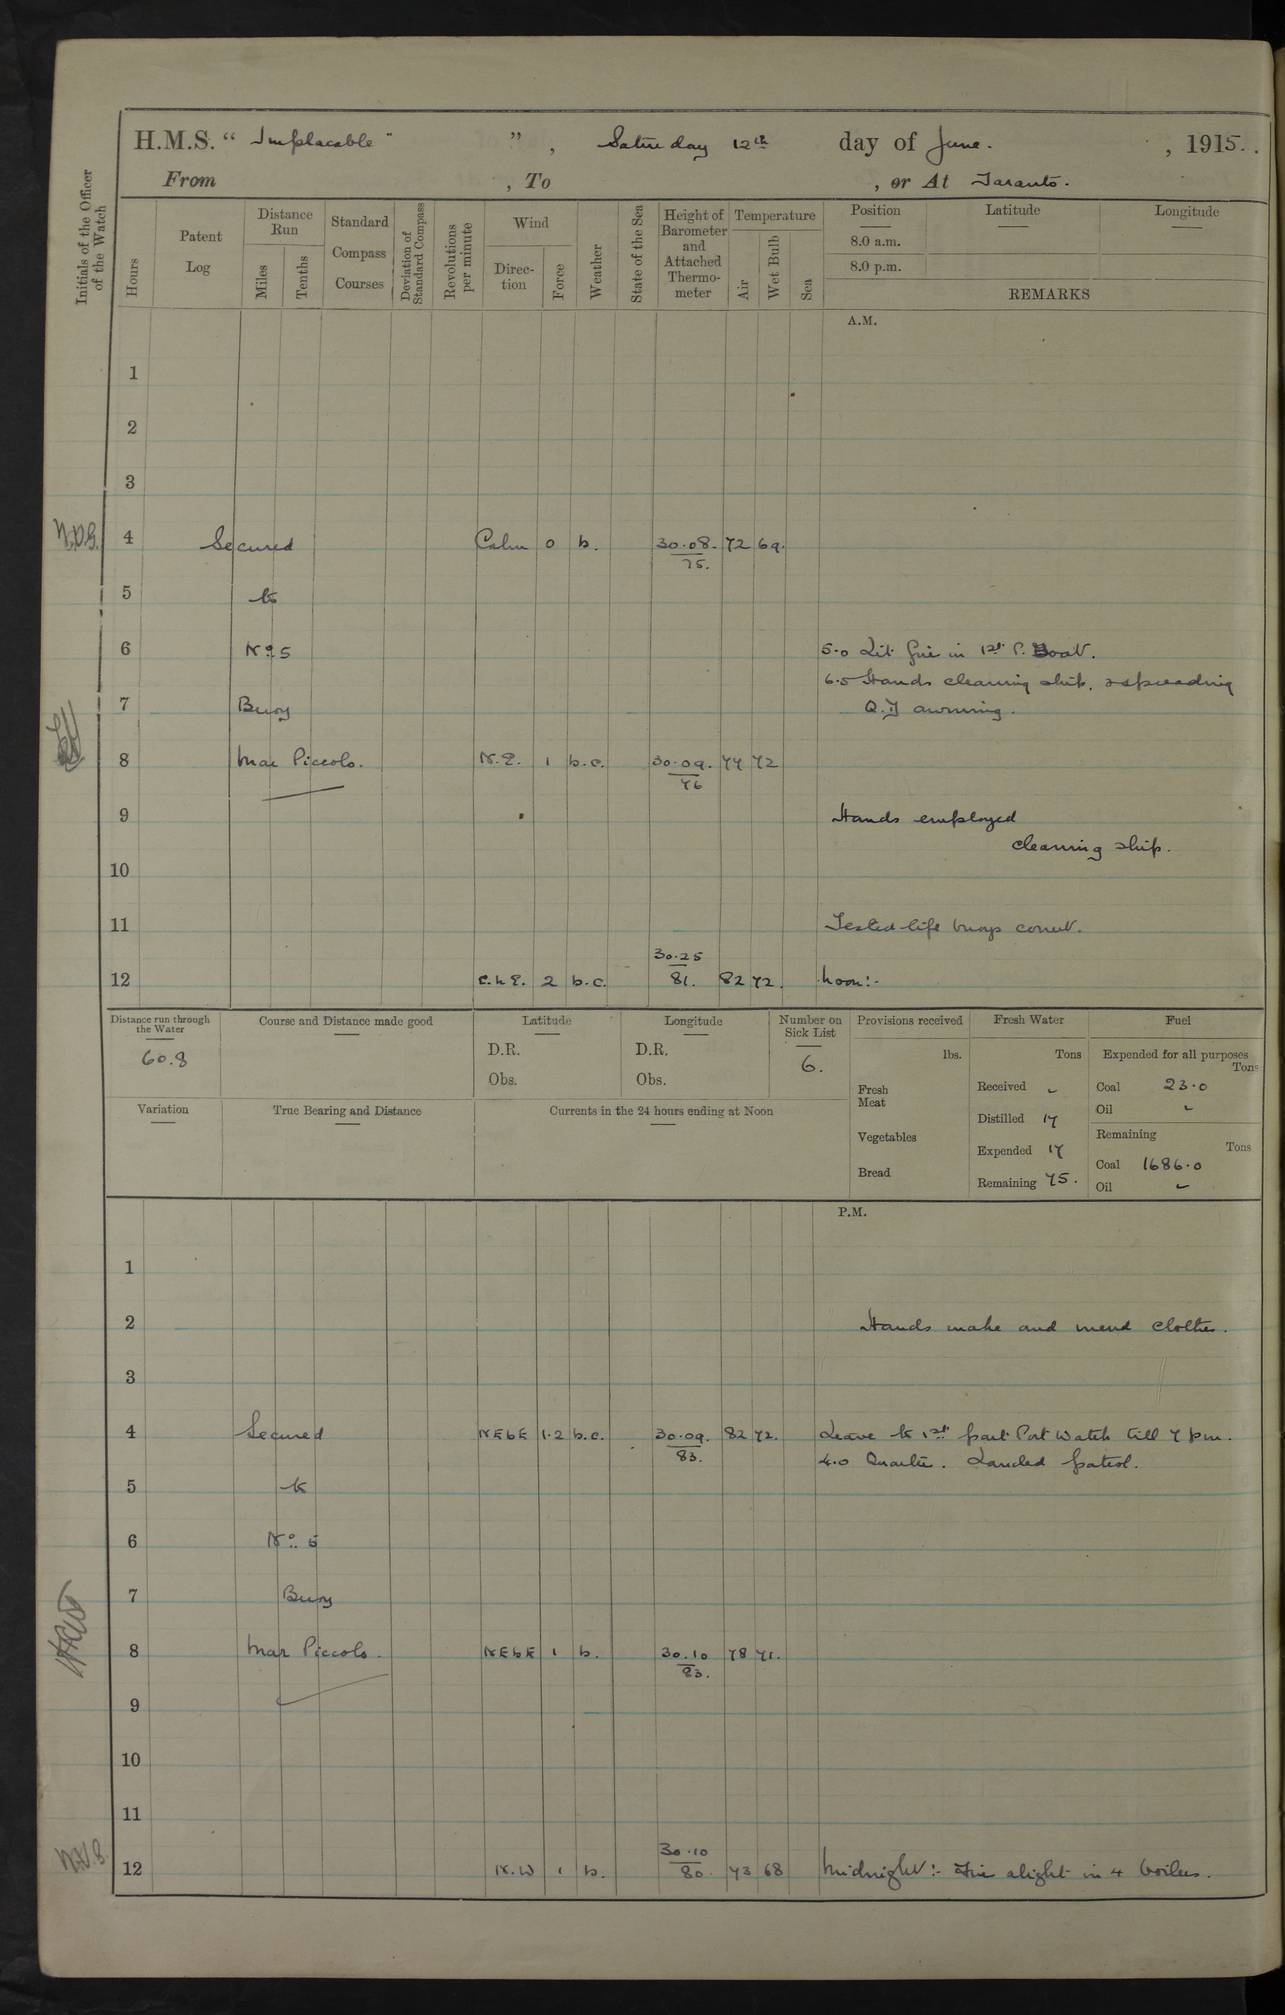 H.M.S. " Implacable " , Saturday 12th day of June. , 1915.
From , To , or At Taranto.
Initials of the Officer of the Watch
Hours
Patent Log
Distance Run
Miles
Tenths
Standard Compass Courses
Deviation of Standard Compass
Revolutions per minute
Wind
Direction
Force
Weather
State of the Sea
Height of Barometer and Attached Thermometer
Temperature
Air
Wet Bulb
Sea
Position Latitude Longitude
8.0 a.m.
8.0 p.m.
REMARKS
A.M.
1
2
3
4 Secured Calm 0 b. 30.08. 72 69.
75.
5 to
6 No 5 5.0 Lit fire in 1st P. Boat.
6.5 Hands cleaning ship. & spreading
7 Buoy Q.D awning.
8 Mar Piccolo. N.E. 1 b.c. 30.09. 77 72
76
9 Hands employed
cleaning ship.
10
11 Tested life buoys correct.
30.25
12 E.b.E. 2 b.c. 81. 82 72. Noon:-
Distance run through the Water
60.8
Course and Distance made good
Latitude
D.R.
Obs.
Longitude
D.R.
Obs.
Number on Sick List
6.
Provisions received
lbs.
Fresh Meat
Vegetables
Bread
Fresh Water
Tons
Received -
Distilled 17
Expended 17
Remaining 75.
Fuel
Expended for all purposes
Tons
Coal 23.0
Oil -
Remaining
Tons
Coal 1686.0
Oil -
Variation
True Bearing and Distance
Currents in the 24 hours ending at Noon
P.M.
1
2 Hands make and mend clothes.
3
4 Secured NEbE 1.2 b.c. 30.09. 82 72. Leave to 1st part Port Watch till 7 pm.
83. 4.0 Quarters. Landed patrol.
5 to
6 No. 5
7 Buoy
8 Mar Piccolo. NEbE 1 b. 30.10 78 71.
83.
9
10
11
30.10
12 N.W 1 b. 80. 73 68 Midnight:- Fires alight in 4 boilers.